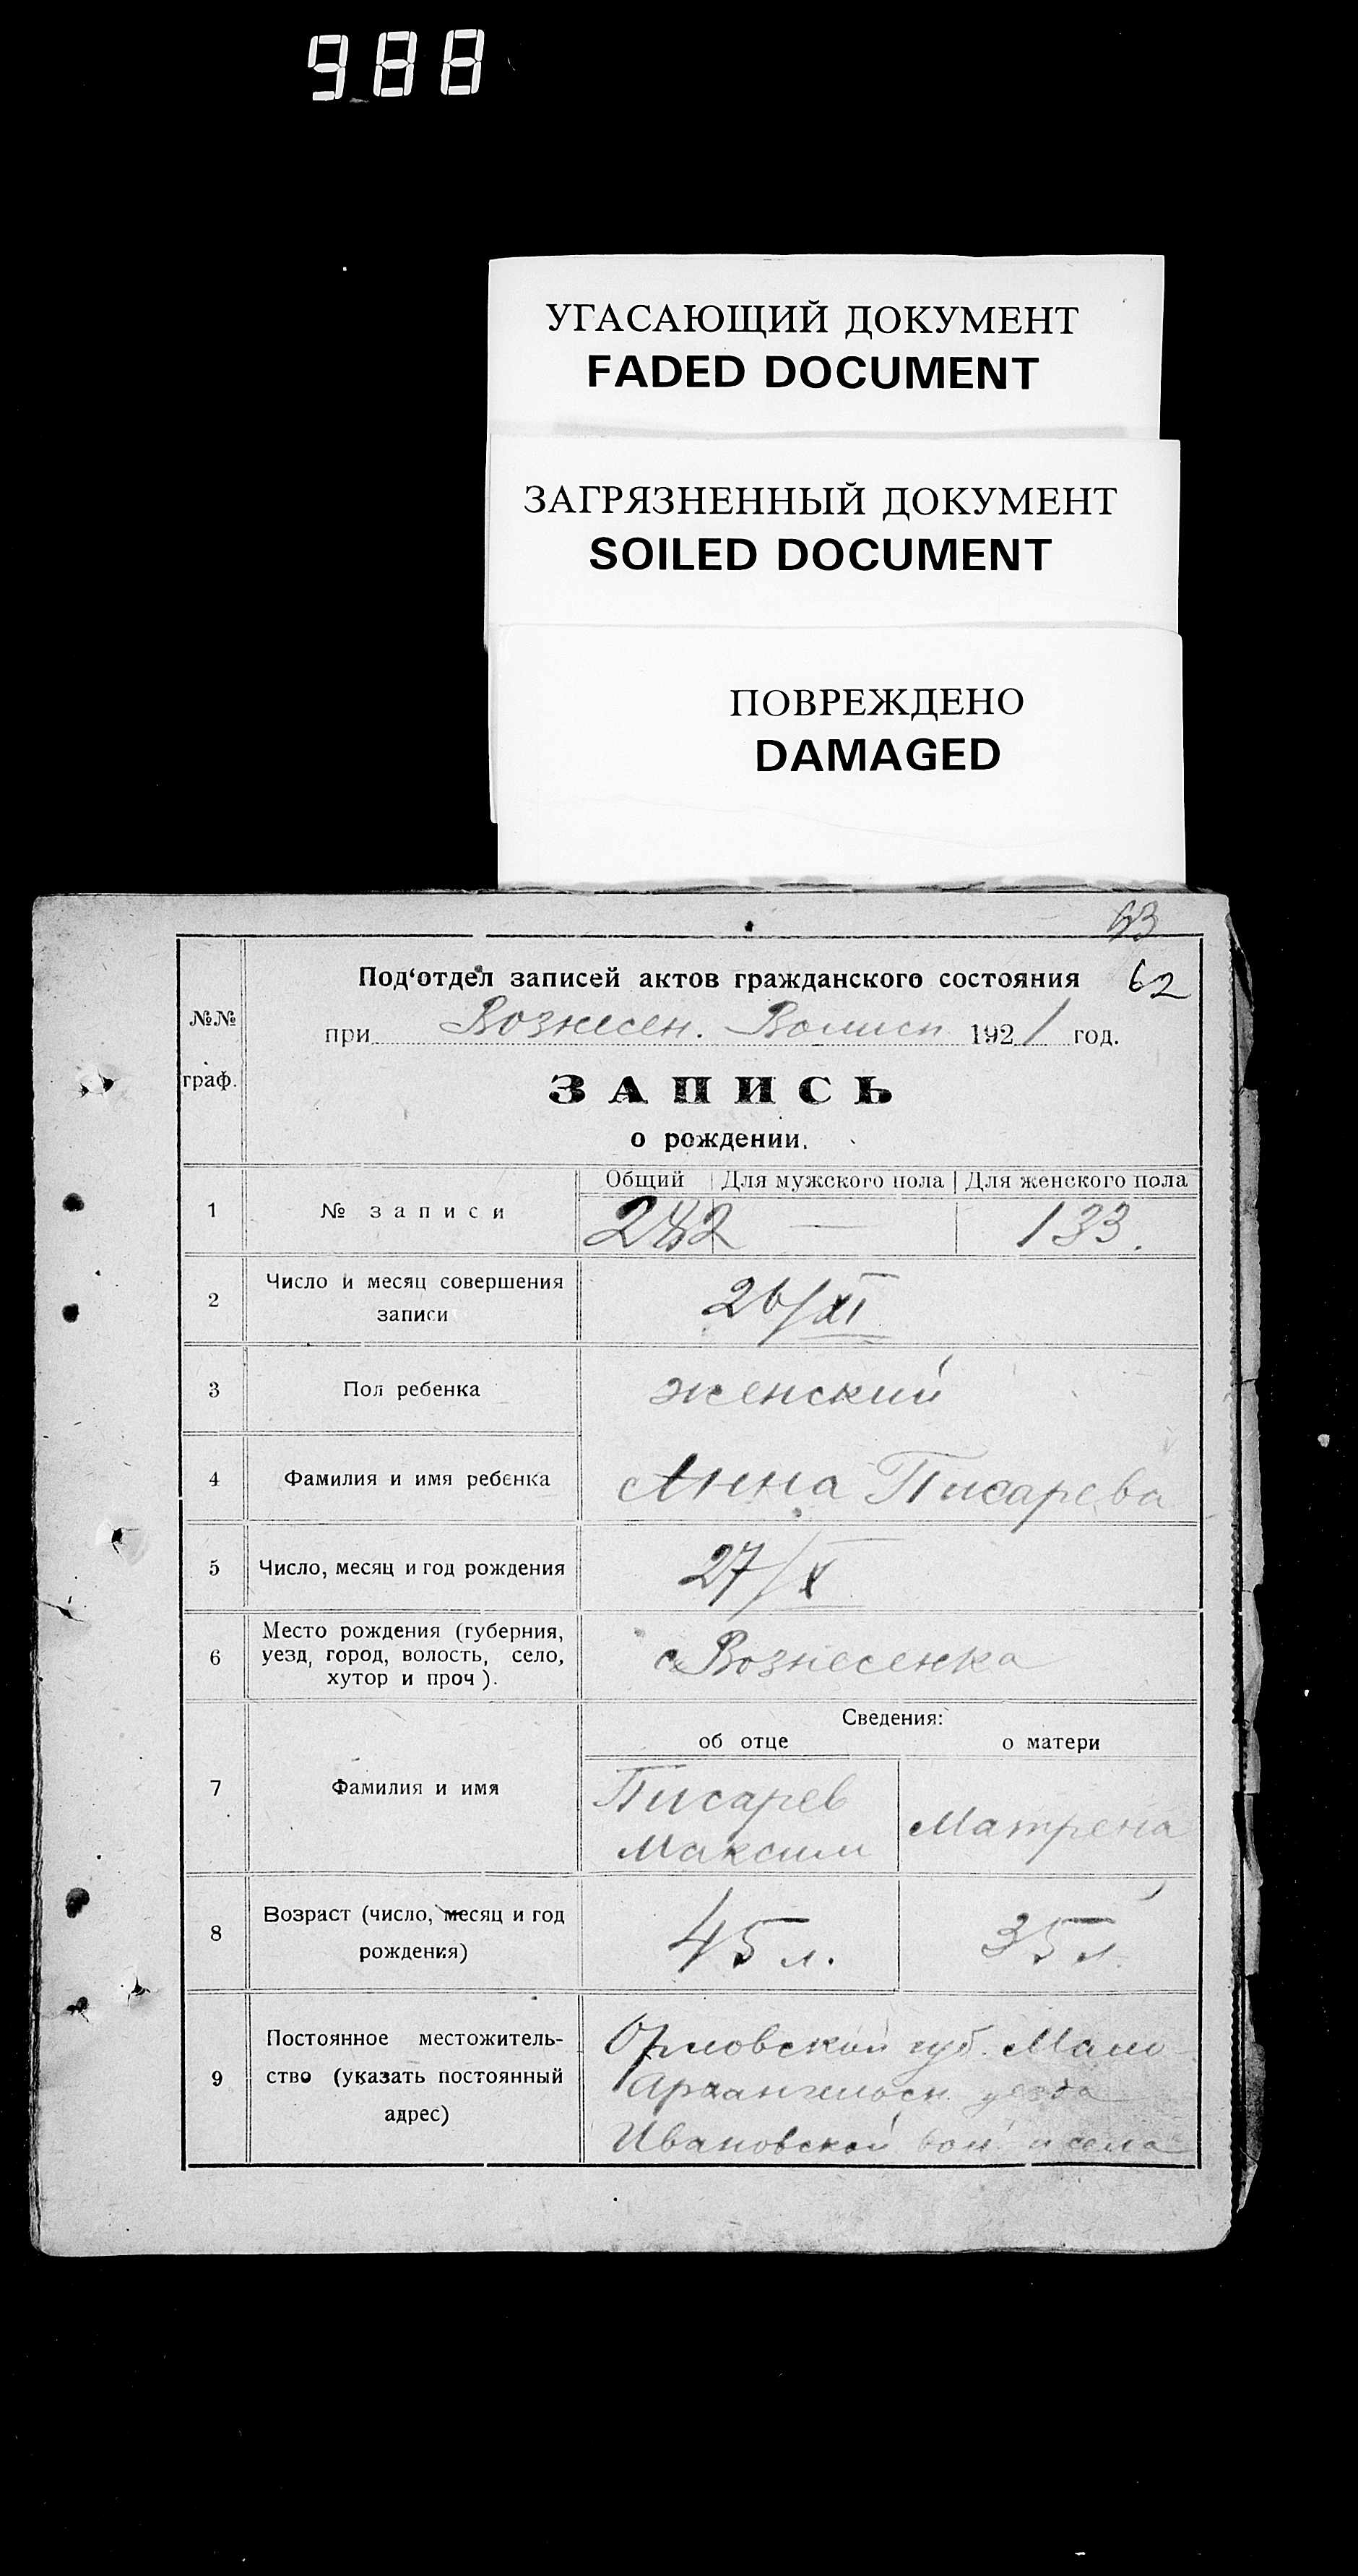 988
УГАСАЮЩИЙ ДОКУМЕНТ
FADED DOCUMENT
ЗАГРЯЗНЕННЫЙ ДОКУМЕНТ
SOILED DOCUMENT
ПОВРЕЖДЕНО
DAMAGED
63
62
Под‘отдел записей актов гражданского состояния
при Вознесен. 1921 год.
№№
граф.
ЗАПИСЬ
о рождении.
Общий Для мужского пола Для женского пола
1 № записи 242 — 133.
2 Число и месяц совершения
записи
26/XI
3 Пол ребенка женский
4 Фамилия и имя ребенка Анна Писарева
5 Число, месяц и год рождения 27/X
6 Место рождения (губерния,
уезд, город, волость, село,
хутор и проч).
с Вознесенка
Сведения:
об отце о матери
7 Фамилия и имя
Писарев
Максим
Матрена
8 Возраст (число, месяц и год
рождения)
45 л. 35 л.
9 Постоянное местожитель-
ство (указать постоянный
адрес)
Орловской губ. Мало
Архангельск уезда
Ивановской вол. села